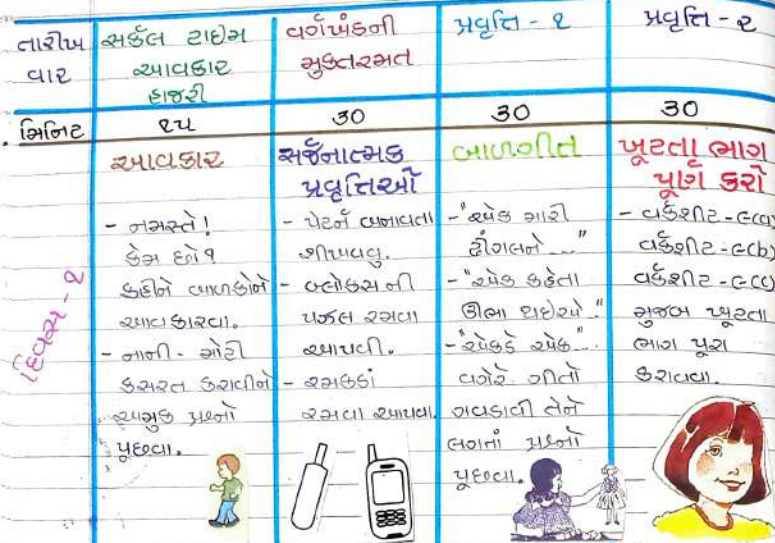 તારીખ
વાર
સર્કલ ટાઈમ
આવકાર
હાજરી
વર્ગખંડની
મુક્તરમત
પ્રવૃત્તિ - ૧
પ્રવૃત્તિ - ૨
મિનિટ
૧૫
૩૦
૩૦
૩૦
દિવસ - ૧
આવકાર
- નમસ્તે!
કેમ છો?
કહીને બાળકોને
આવકારવા.
- નાની - મોટી
કસરત કરાવીને
અમુક પ્રશ્નો
પૂછવા.
સર્જનાત્મક
પ્રવૃત્તિઓ
- પેટર્ન બનાવતા
શીખવવુ.
- બ્લોકસની
પઝલ રમવા
આપવી.
- રમકડાં
રમવા આપવા.
બાળગીત
- "એક મારી
ઢીંગલને ..."
- "એક કહેતા
ઊભા થઈએ."
- "એકડે એક"..
વગેરે ગીતો
ગવડાવી તેને
લગતાં પ્રશ્નો
પૂછવા.
ખૂટતા ભાગ
પૂર્ણ કરો
- વર્કશીટ-૯(a)
વર્કશીટ-૯(b)
વર્કશીટ-૯(c)
મુજબ ખૂટતા
ભાગ પૂરા
કરાવવા.